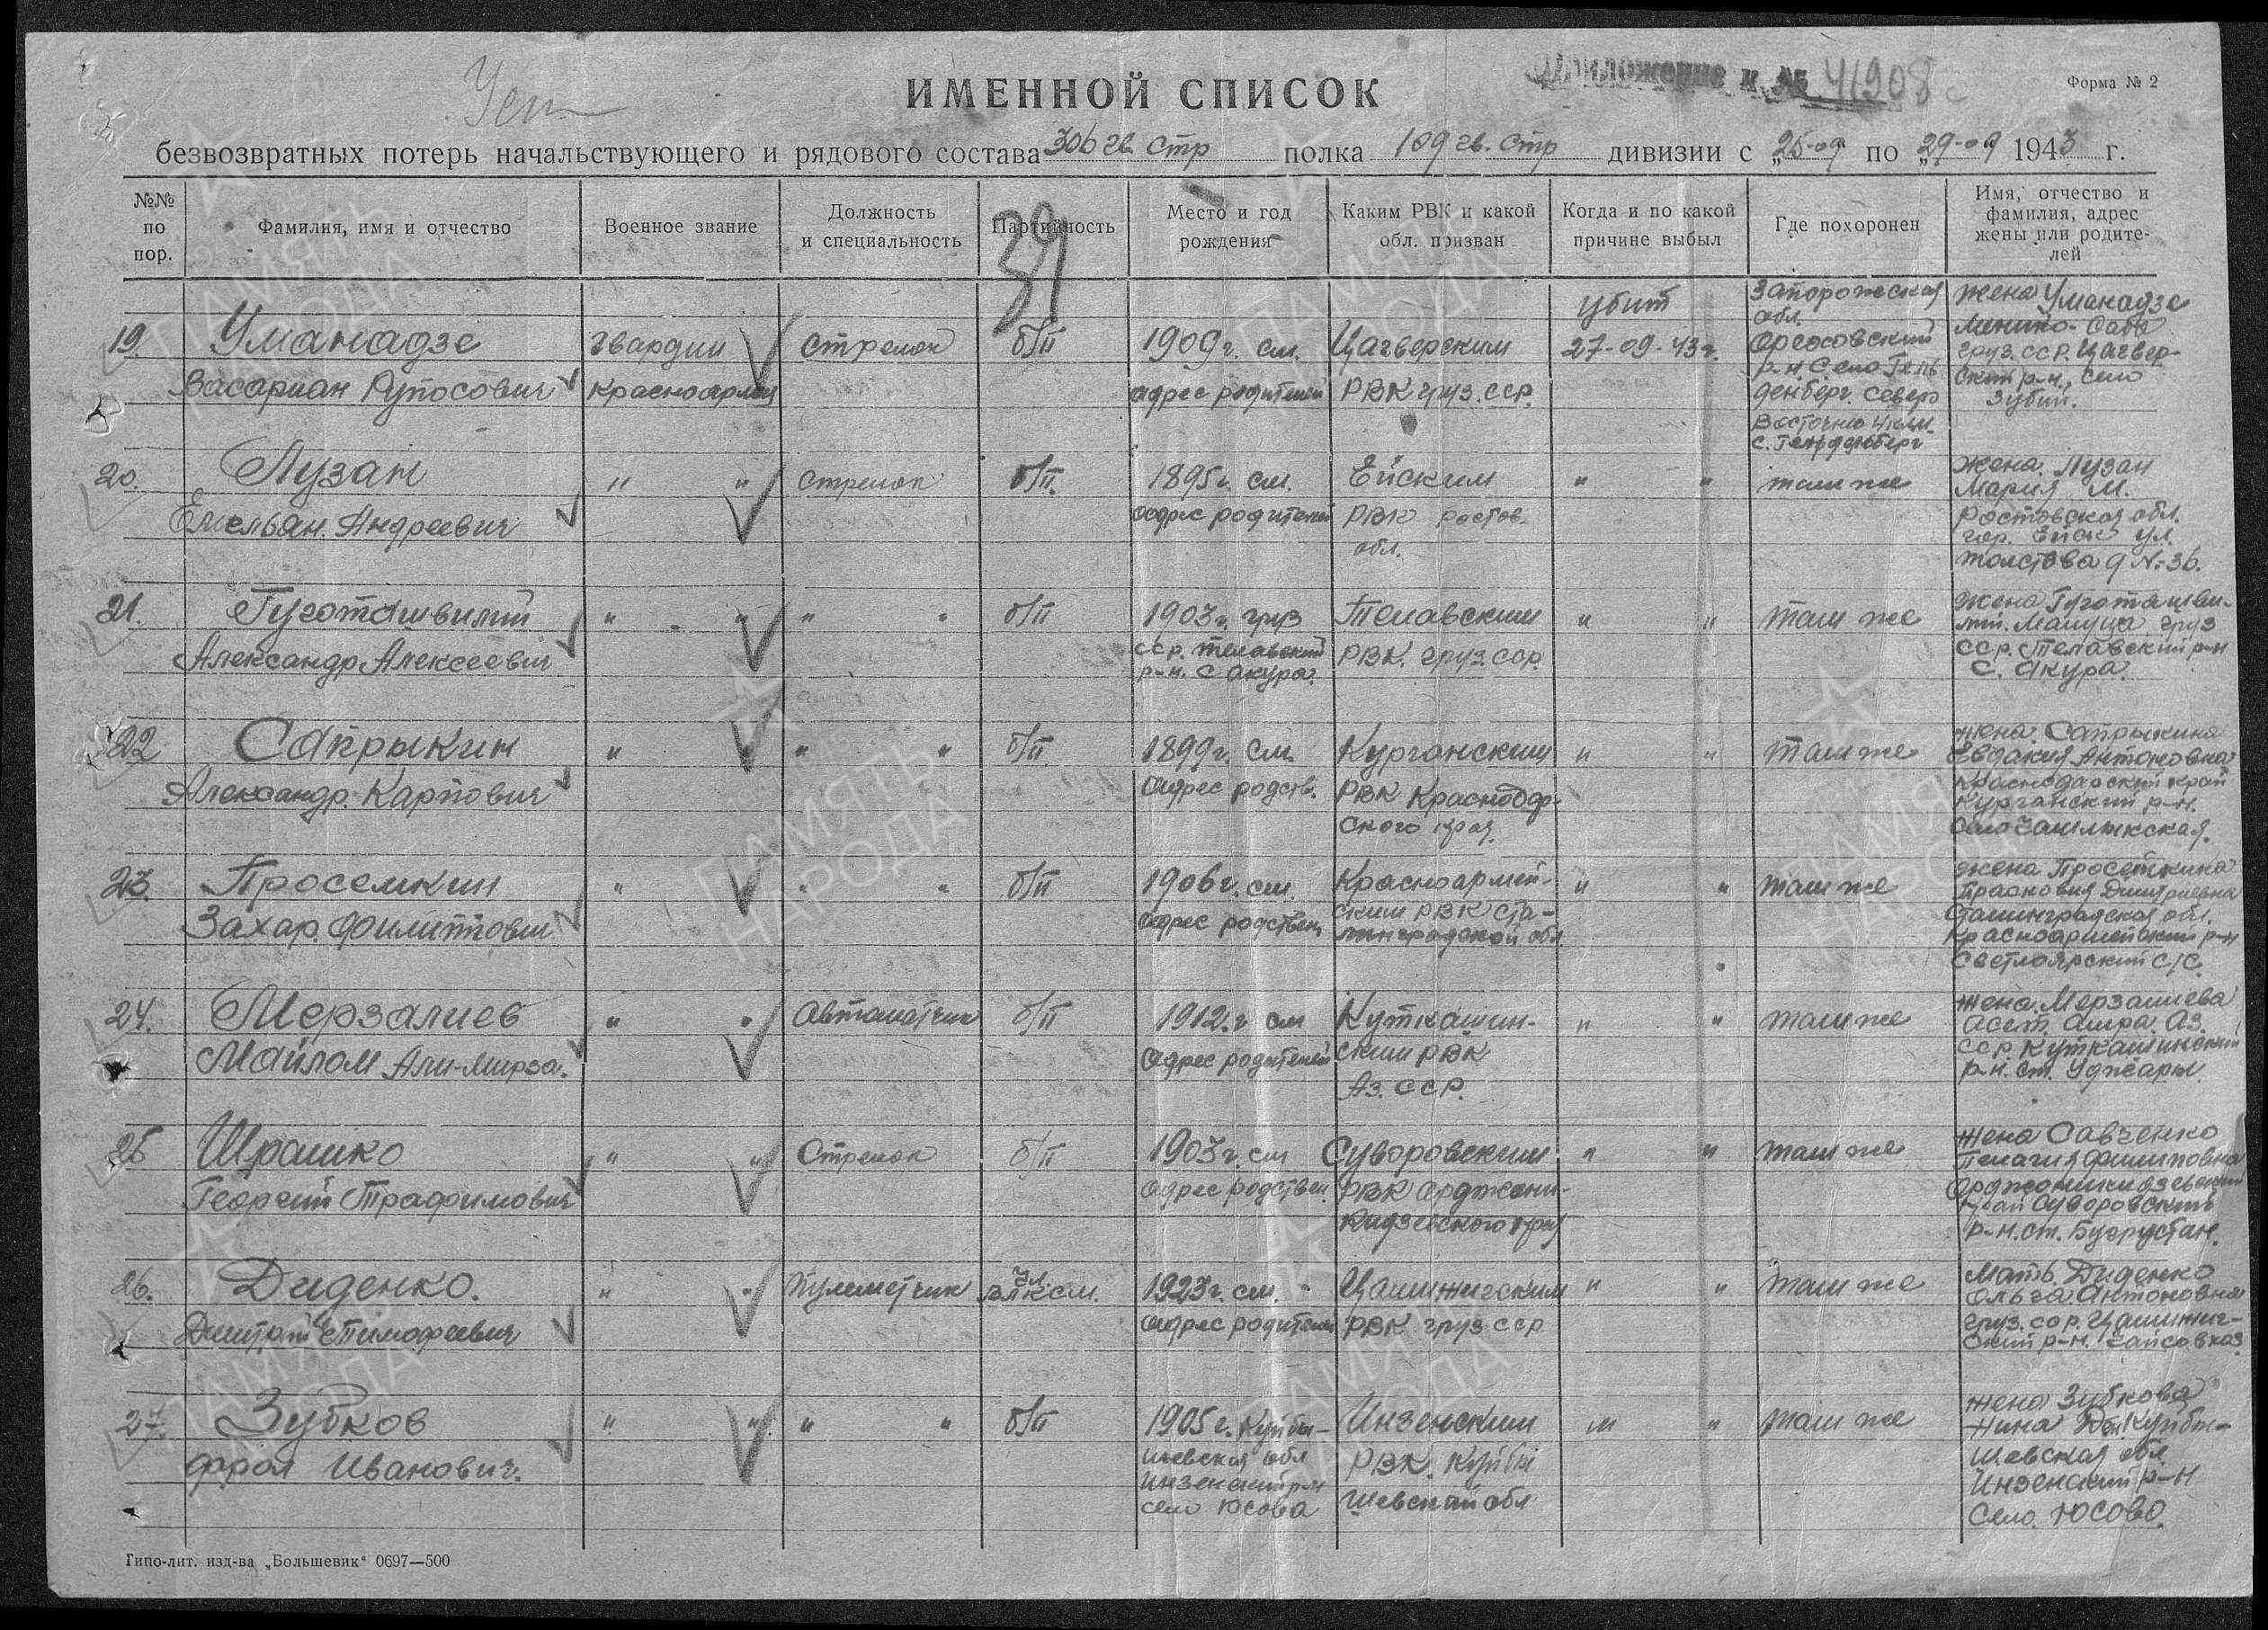 Приложение к № 41908с
Форма № 2
ИМЕННОЙ СПИСОК
безвозвратных потерь начальствующего и рядового состава 306 гв. Стр полка 109 гв. Стр дивизии с „25-09" по „29-09" 1943 г.
№№ по пор.
Фамилия, имя и отчество
Военное звание
Должность и специальность
Партийность
Место и год рождения
Каким РВК и какой обл. призван
Когда и по какой причине выбыл
Где похоронен
Имя, отчество и фамилия, адрес жены или родителей
39
19. Уманадзе гвардии стрелок б/п 1909г. см. Цагверским убит 27-09-43г. Запорожская обл.
Васариан Рупосович красноармеец адрес родителей РВК груз. сср. р-н. Село Гель
денберг. северо
Восточно
с. Гельденберг
жена Уманадзе
груз. сср. Цагвер-
ский р-н, село
Зубии.
20. Лузан " " стрелок б/п. 1895г. см. Ейским " " там же
Емельян. Андреевич адрес родителей РВК ростов. обл.
жена. Лузан
Мария М.
Ростовская обл.
гор. Ейск ул.
Толстова д №-36.
21. Гуготошвилий " " " " б/п 1903г. груз Телавским " " там же
Александр Алексеевич сср. Телавский РВК. груз сср.
р-н. с акура.
сср. Телавский р-н
с. Акура.
22 Сапрыкин " " " " б/п 1899г. см. Курганским " " там же
Александр. Карпович адрес родств. РВК Краснодар-
ского края.
жена Сапрыкина
Евдакия Антоновна
Краснодарский край
Курганский р-н.
23. Просемкин " " " " б/п 1906г. см. Красноармей- " " там же
Захар. Филиппович адрес родствен. ским РВК Ста-
линградской обл
жена
Прасковия Дмитриевна
Сталинградская обл.
Красноармейский р-н
Светлоярский с/с.
24. Мерзалиев " " Автоматчик б/п 1912.г см Куткашин- " " там же
Майлом Али-Мирза. адрес родителей ским РВК
Аз. ССР.
жена. Мерзалиева
Аз.
сср. Куткашинский
р-н. ст. Уджары
25 Шрамко " " Стрелок б/п 1903г. см Суворовским " " там же
Георгий Трафимович адрес родствен. РВК орджони-
кидзевского края
жена Савченко
Пелагия Филиповна
Орджоникидзевский
край Суворовский
р-н. ст. Бугрустан.
26. Диденко. " " Пулеметчик чл. ВЛКСМ. 1923г. см. " " там же
Дмитрий Тимофеевич адрес родителей РВК груз сср
Мать. Диденко
Ольга Антоновна
груз. сср.
27. Зубков " " " " б/п 1905г. Куйбы- Инзенским " " там же
Фрол Иванович. шевская обл РВК. Куйбы
Инзенский р-н шевской обл
село Юсова
жена Зубкова
Нина Куйбы-
шевская обл.
Инзенский р-н
Село. Юсово.
Гипо-лит. изд-ва „Большевик" 0697—500
ПАМЯТЬ НАРОДА